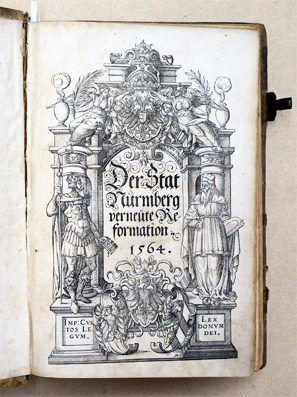 Der Stat
Nürmberg
verneüte Re-
formation.
1564.
IMP: CVS
TOS LE
GVM.
LEX
DONVM
DEI.